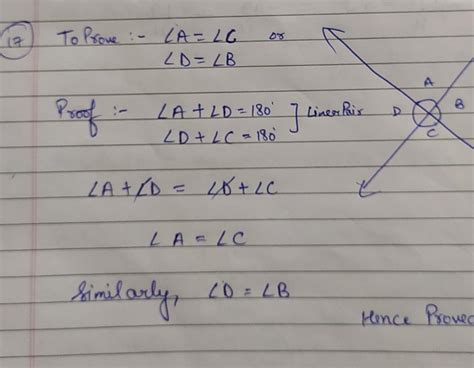 17 To Prove :- ∠A = ∠C or
∠D = ∠B
A
D B
C
Proof :- ∠A + ∠D = 180° ] Linear Pair
∠D + ∠C = 180°
∠A + ∠D = ∠D + ∠C
∠A = ∠C
Similarly, ∠D = ∠B
Hence Proved